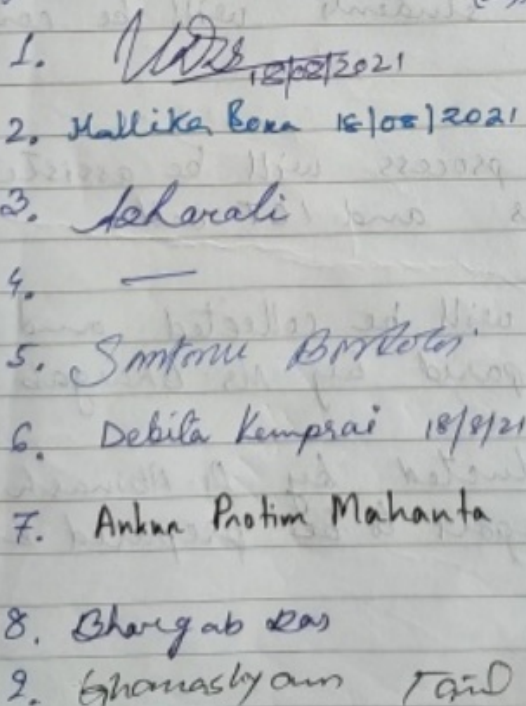 1. 18/08/2021
2. Mallika Bora 18/08/2021
3.
4. —
5. Santonu Bordoloi
6. Debila Kemprai 18/8/21
7. Ankur Protim Mahanta
8. Bhargab Das
9. Ghanashyam Taid